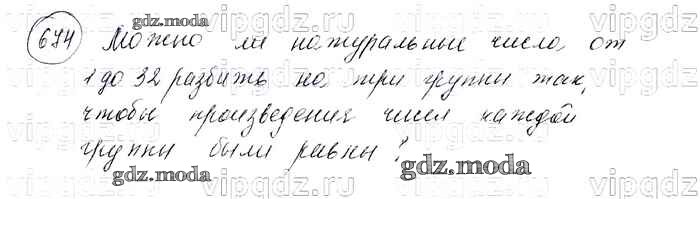 vipgdz.ru gdz.moda vipgdz.ru vipgdz.ru
674 Можно ли натуральные числа от
1 до 32 разбить на три группы так,
vipgdz.ru vipgdz.ru vipgdz.ru
чтобы произведения чисел каждой
vipgdz.ru vipgdz.ru vipgdz.ru
группы были равны?
gdz.moda gdz.moda
vipgdz.ru vipgdz.ru vipgdz.ru